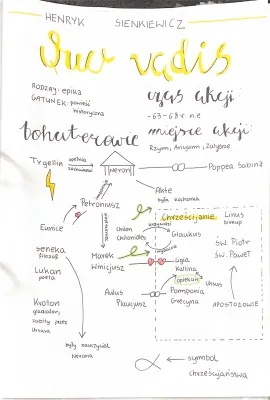 HENRYK SIENKIEWICZ
Quo vadis
RODZAJ: epika
GATUNEK: powieść
historyczna
czas akcji:
~63-68 r n.e
bohaterowie
miejsce akcji
Rzym, Ancjum, Zatybrze
Tygellin
spełnia
zachcianki
Neron
Poppea Sabina
Petroniusz
Akte
była kochanka
Chrześcijanie
Linus
biskup
Eunice
Chilon
Chilonides
Glaukus
św. Piotr
św. Paweł
Seneka
filozof
Marek
Winicjusz
Ligia
Łukan
poeta
Kalina
opiekun
Ursus
Aulus
Plaucjusz
Pomponia
Grecyna
APOSTOŁOWIE
Kroton
gladiator,
zabity przez
Ursusa
były nauczyciel
Nerona
symbol
chrześcijaństwa